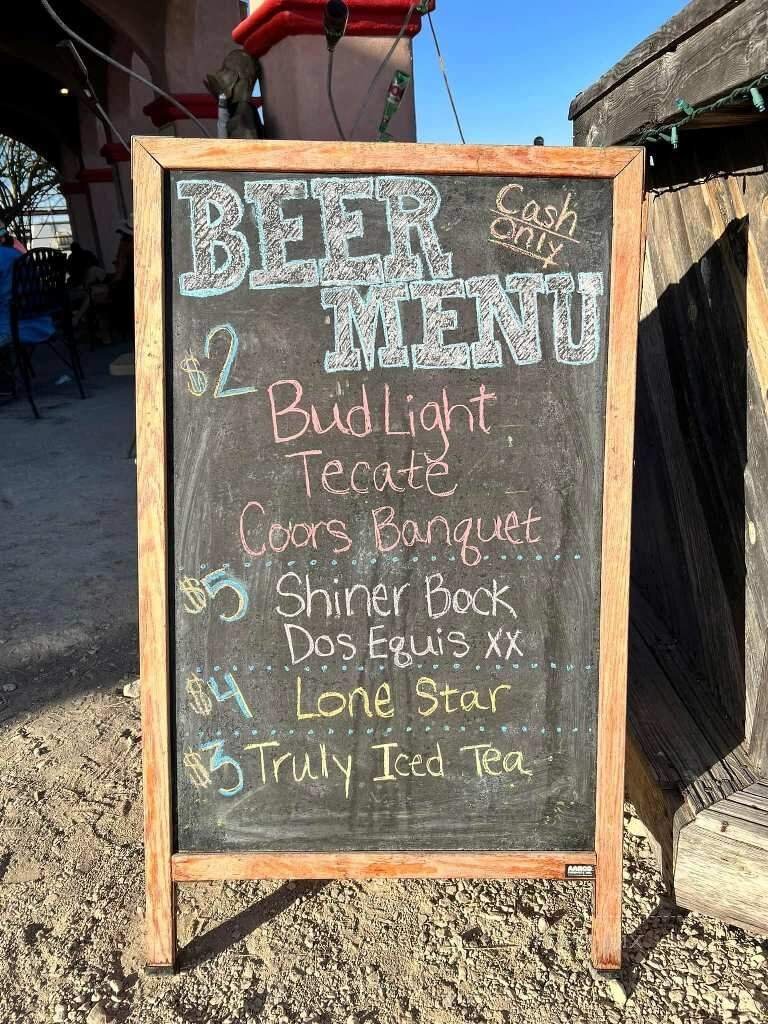 BEER
Cash
Only
MENU
$2
Bud Light
Tecate
Coors Banquet
$5 Shiner Bock
Dos Equis XX
$4 Lone Star
$3 Truly Iced Tea
AARCO